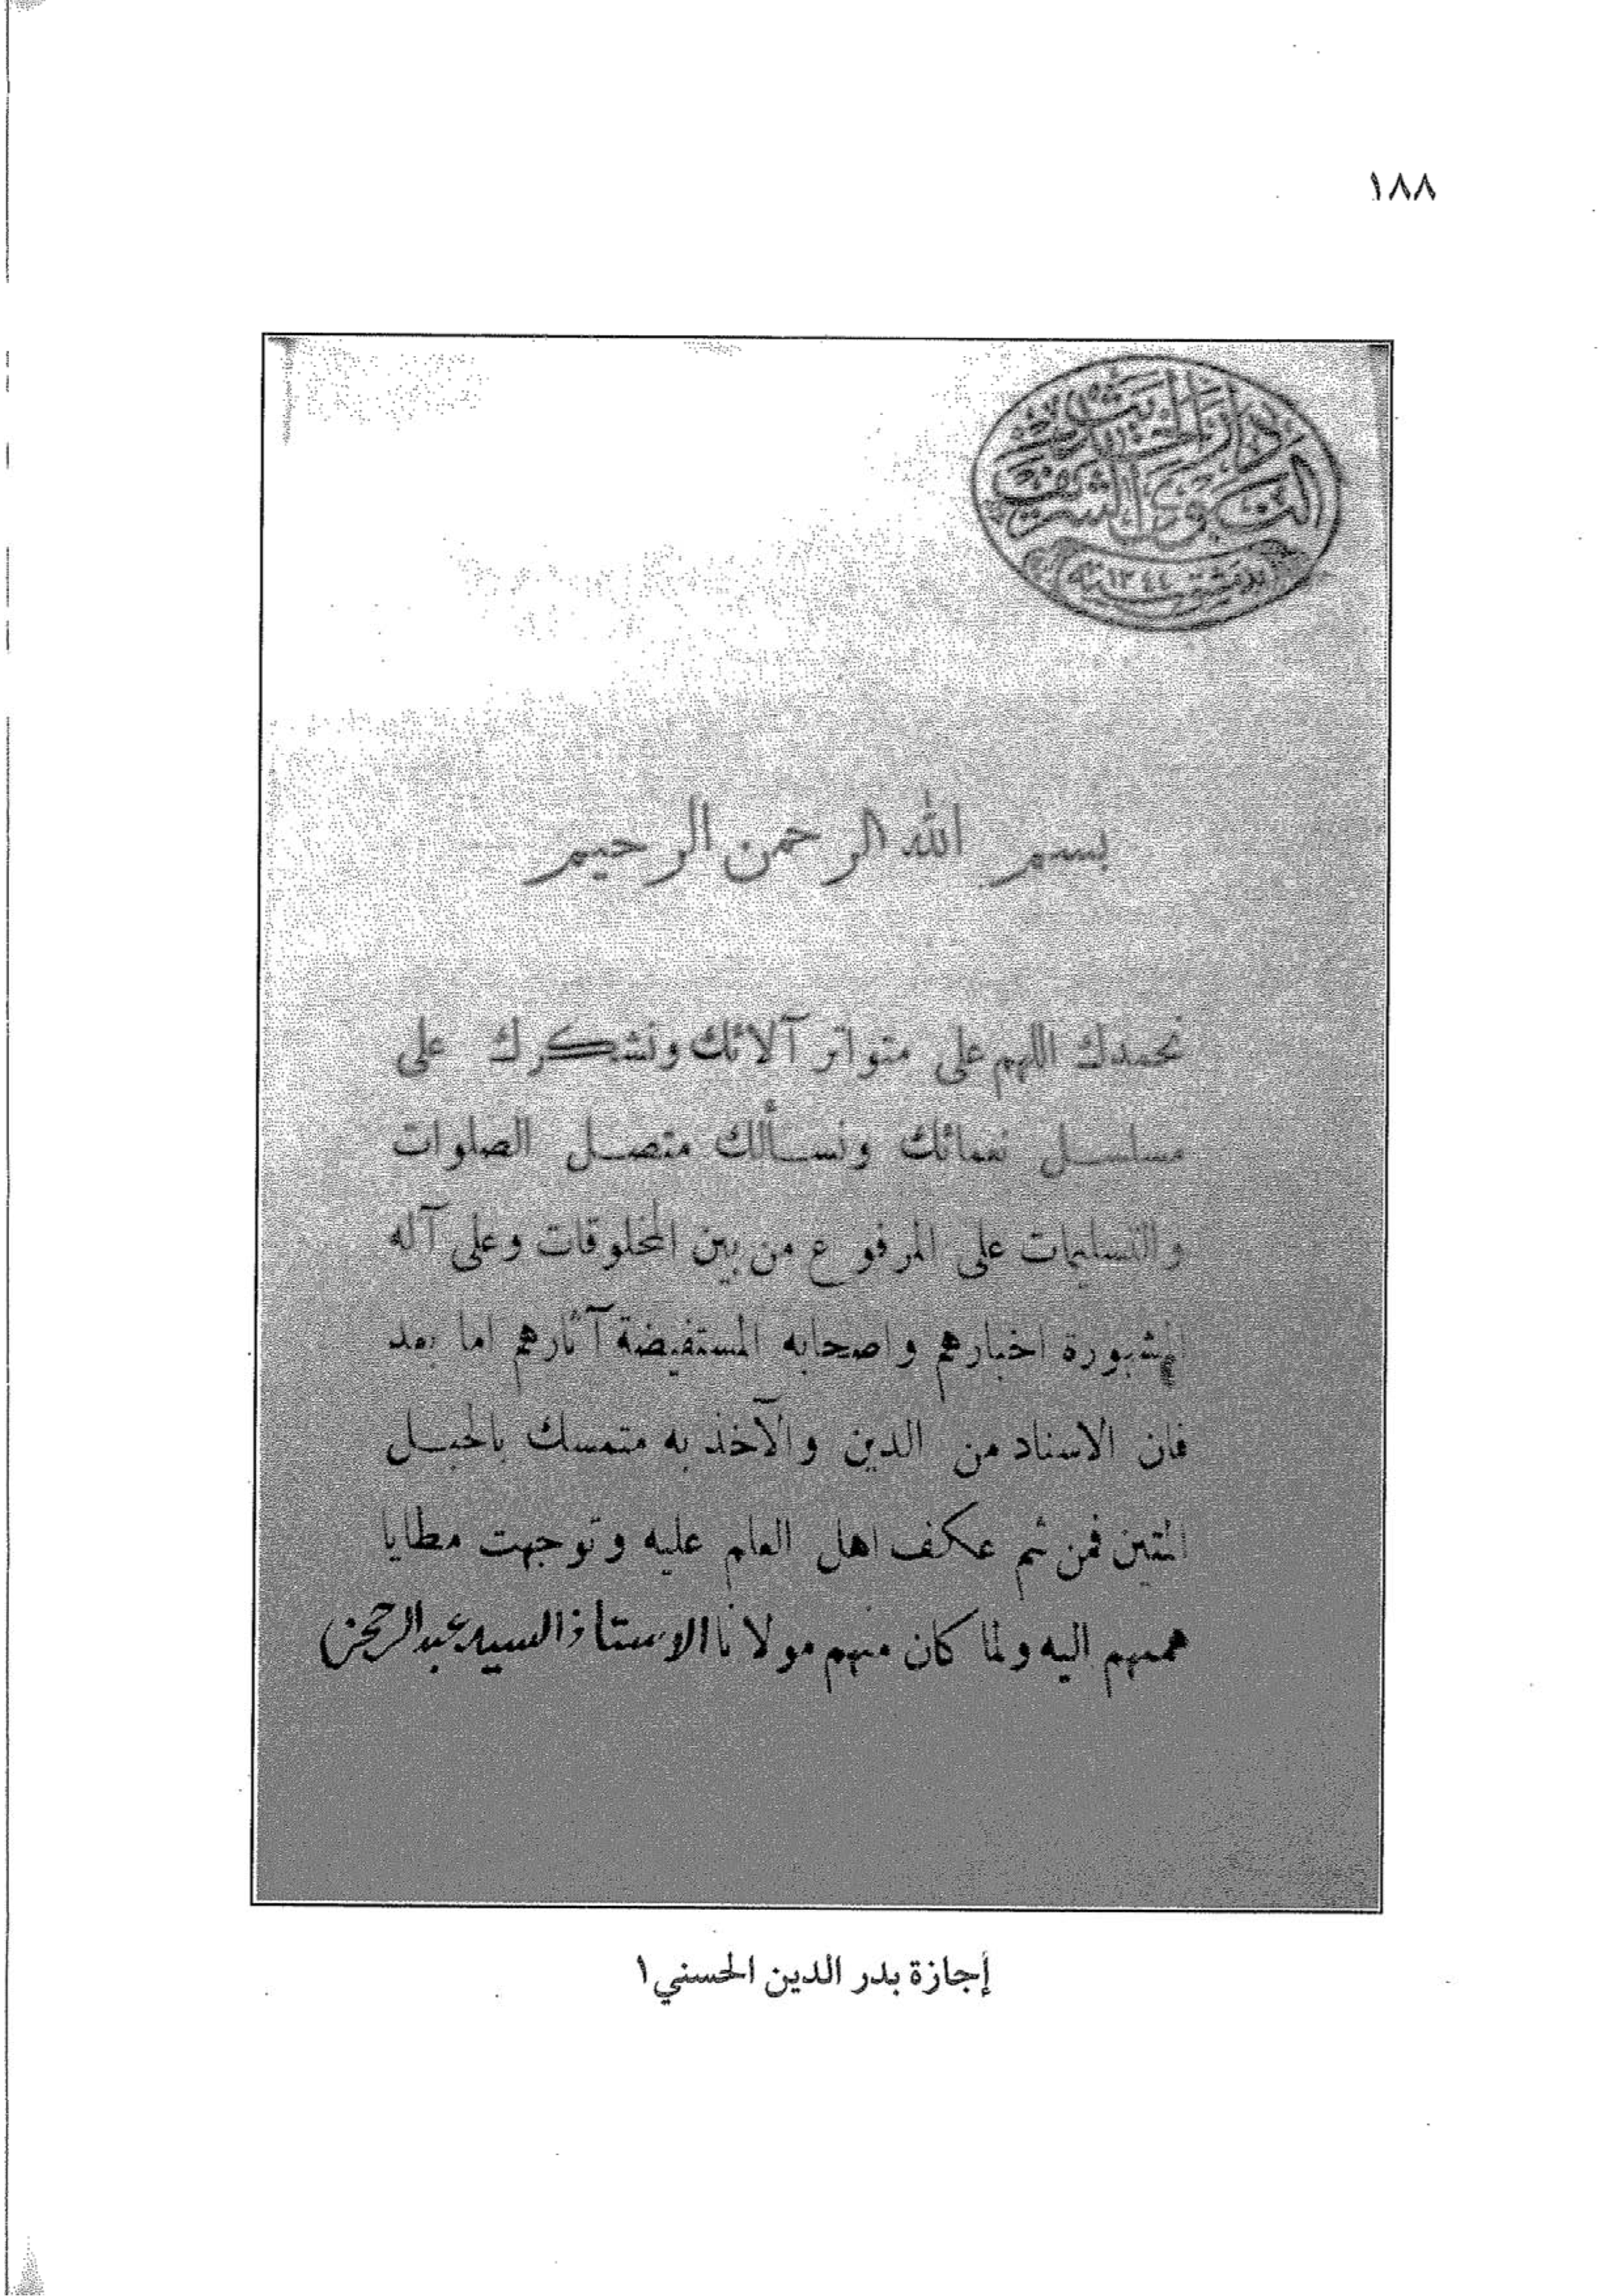 ١٨٨
دار الحديث
النووي الشريف
بدمشق سنة ١٣٤٤
بسم الله الرحمن الرحيم
نحمدك اللهم على متواتر آلائك ونشكرك على
مسلسل نعمائك ونسألك متصل الصلوات
والتسليمات على المرفوع من بين المخلوقات وعلى آله
المشهورة اخبارهم واصحابه المستفيضة آثارهم اما بعد
فان الاسناد من الدين والآخذ به متمسك بالحبل
المتين فمن ثم عكف اهل العلم عليه وتوجهت مطايا
هممهم اليه ولما كان منهم مولانا الاستاذ السيد عبد الرحمن
إجازة بدر الدين الحسني ١